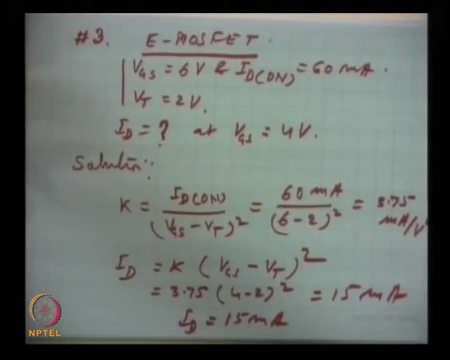 #3. E-MOSFET.
V_GS = 6V & I_D(ON) = 60 mA.
V_T = 2V.
I_D = ? at V_GS = 4V.
Solution:
K = I_D(ON) / (V_GS - V_T)^2 = 60 mA / (6-2)^2 = 3.75 mA/V
I_D = K (V_GS - V_T)^2
= 3.75 (4-2)^2 = 15 mA
I_D = 15 mA
NPTEL